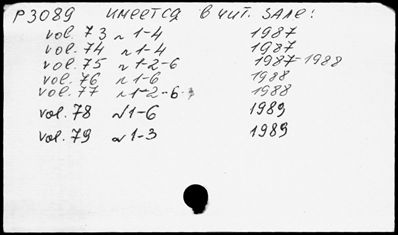 P3089 имеется в чит. зале:
vol. 73 N 1-4 1987
vol. 74 N 1-4 1987
vol. 75 N 1-2-6 1987-1988
vol. 76 N 1-6 1988
vol. 77 N 1-2-6. 1988
vol. 78 N 1-6 1989
vol. 79 N 1-3 1989